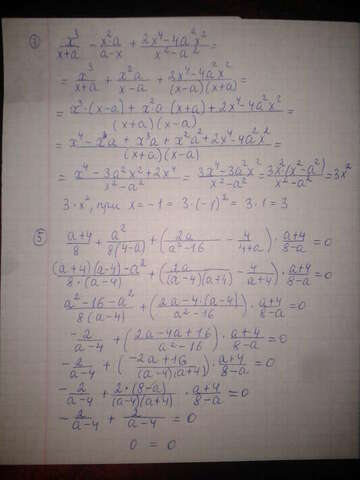 ① x³/(x+a) - x²a/(a-x) + (2x⁴-4a²x²)/(x²-a²) =
= x³/(x+a) + x²a/(x-a) + (2x⁴-4a²x²)/((x-a)(x+a)) =
= (x³·(x-a) + x²a(x+a) + 2x⁴-4a²x²)/((x+a)(x-a)) =
= (x⁴-x³a + x³a + x²a² + 2x⁴-4a²x²)/((x+a)(x-a)) =
= (x⁴-3a²x²+2x⁴)/(x²-a²) = (3x⁴-3a²x²)/(x²-a²) = 3x²(x²-a²)/(x²-a²) = 3x²
3·x², при x=-1 = 3·(-1)² = 3·1 = 3
⑤ (a+4)/8 + a²/(8(4-a)) + (2a/(a²-16) - 4/(4+a))·(a+4)/(8-a) = 0
((a+4)(a-4)-a²)/(8·(a-4)) + (2a/((a-4)(a+4)) - 4/(a+4))·(a+4)/(8-a) = 0
(a²-16-a²)/(8(a-4)) + ((2a-4·(a-4))/(a²-16))·(a+4)/(8-a) = 0
-2/(a-4) + ((2a-4a+16)/(a²-16))·(a+4)/(8-a) = 0
-2/(a-4) + ((-2a+16)/((a-4)(a+4)))·(a+4)/(8-a) = 0
-2/(a-4) + 2·(8-a)/((a-4)(a+4))·(a+4)/(8-a) = 0
-2/(a-4) + 2/(a-4) = 0
0 = 0